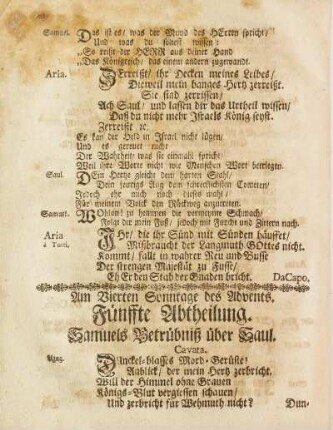 Samuel. Das ist es/ was der Mund des HErrn spricht/
Und was du solest wissen:
„So reist der HERR aus deiner Hand
„Das Königreich/ das einem andern zugewandt.
Aria. Zerreißt/ ihr Decken meines Leibes/
Dieweil mein banges Hertz zerreißt.
Sie sind zerrissen/
Ach Saul/ und lassen dir das Urtheil wissen/
Daß du nicht mehr Israels König seyst.
Zerreißt ꝛc.
Es kan der Held in Israel nicht lügen/
Und es gereuet nicht
Der Wahrheit/ was sie einmahl spricht
Weil ihre Worte nicht wie Menschen Wort betriegen.
Saul. Dein Hertze gleicht dem harten Stahl/
Dein feurigs Aug dem schrecklichsten Cometen/
Jedoch ehr mich noch dieses mahl/
Für meinem Volck den Rückweg anzutreten.
Samuel. Wohlan! zu hemmen die vermeynte Schmach/
Folgt der mein Fuß/ jedoch mit Furcht und Zittern nach.
Aria Ihr/ die ihr Sünd mit Sünden häuffet/
à Tutti. Mißbraucht der Langmuth GOttes nicht.
Kommt/ fallt in wahrer Reu und Busse
Der strengen Majestät zu Fusse/
Eh Er den Stab der Gnaden bricht. DaCapo.
Am Vierten Sonntage des Advents.
Fünffte Abtheilung.
Samuels Betrübniß über Saul.
Cavata.
Dunckel-blasses Mord-Gerüste!
Anblick/ der mein Hertz zerbricht.
Will der Himmel ohne Grauen
Königs-Blut vergiessen schauen/
Und zerbricht für Wehmuth nicht?
Dun-